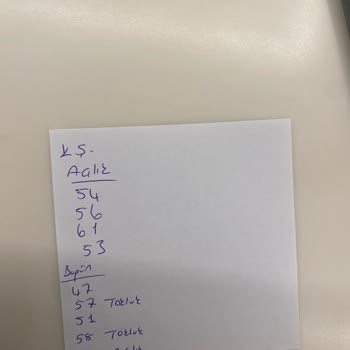 K Ş.
Açlık
54
56
61
53
Bugün
47
57 Tokluk
51
58 Tokluk